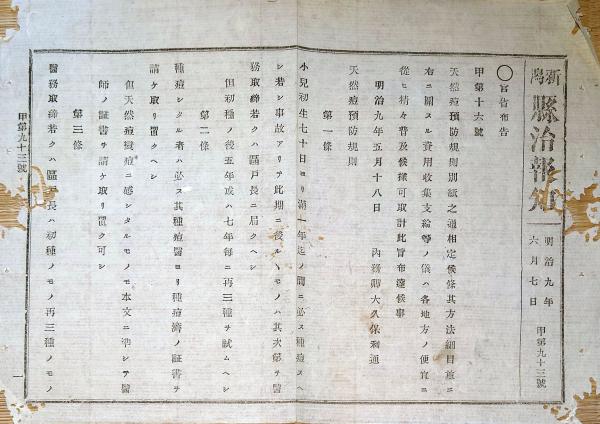 新潟
縣治報知
明治九年
六月七日
甲第九十三號
〇官省布告
甲第十六號
天然痘預防規則別紙之通相定候條其方法細目並ニ
右ニ關スル費用收集支給等ノ儀ハ各地方ノ便宜ニ
從ヒ精々普及候樣可取計此旨布達候事
明治九年五月十八日 內務卿大久保利通
天然痘預防規則
第一條
小兒初生七十日ヨリ滿一年迄ノ間ニ必ス種痘スヘ
シ若シ事故アリテ此期ニ後ルヽモノハ其次第ヲ醫
務取締若クハ區戶長ニ屆クヘシ
但初種ノ後五年或ハ七年每ニ再三種ヲ試ムヘシ
第二條
種痘シタル者ハ必ス其種痘醫ヨリ種痘濟ノ証書ヲ
請ケ取リ置クヘシ
但天然痘ニ感シタルモノモ本文ニ準シテ醫
師ノ証書ヲ請ケ取リ置ク可シ
第三條
醫務取締若クハ區戶長ハ初種ノモノ再三種ノモノ
甲第九十三號
一